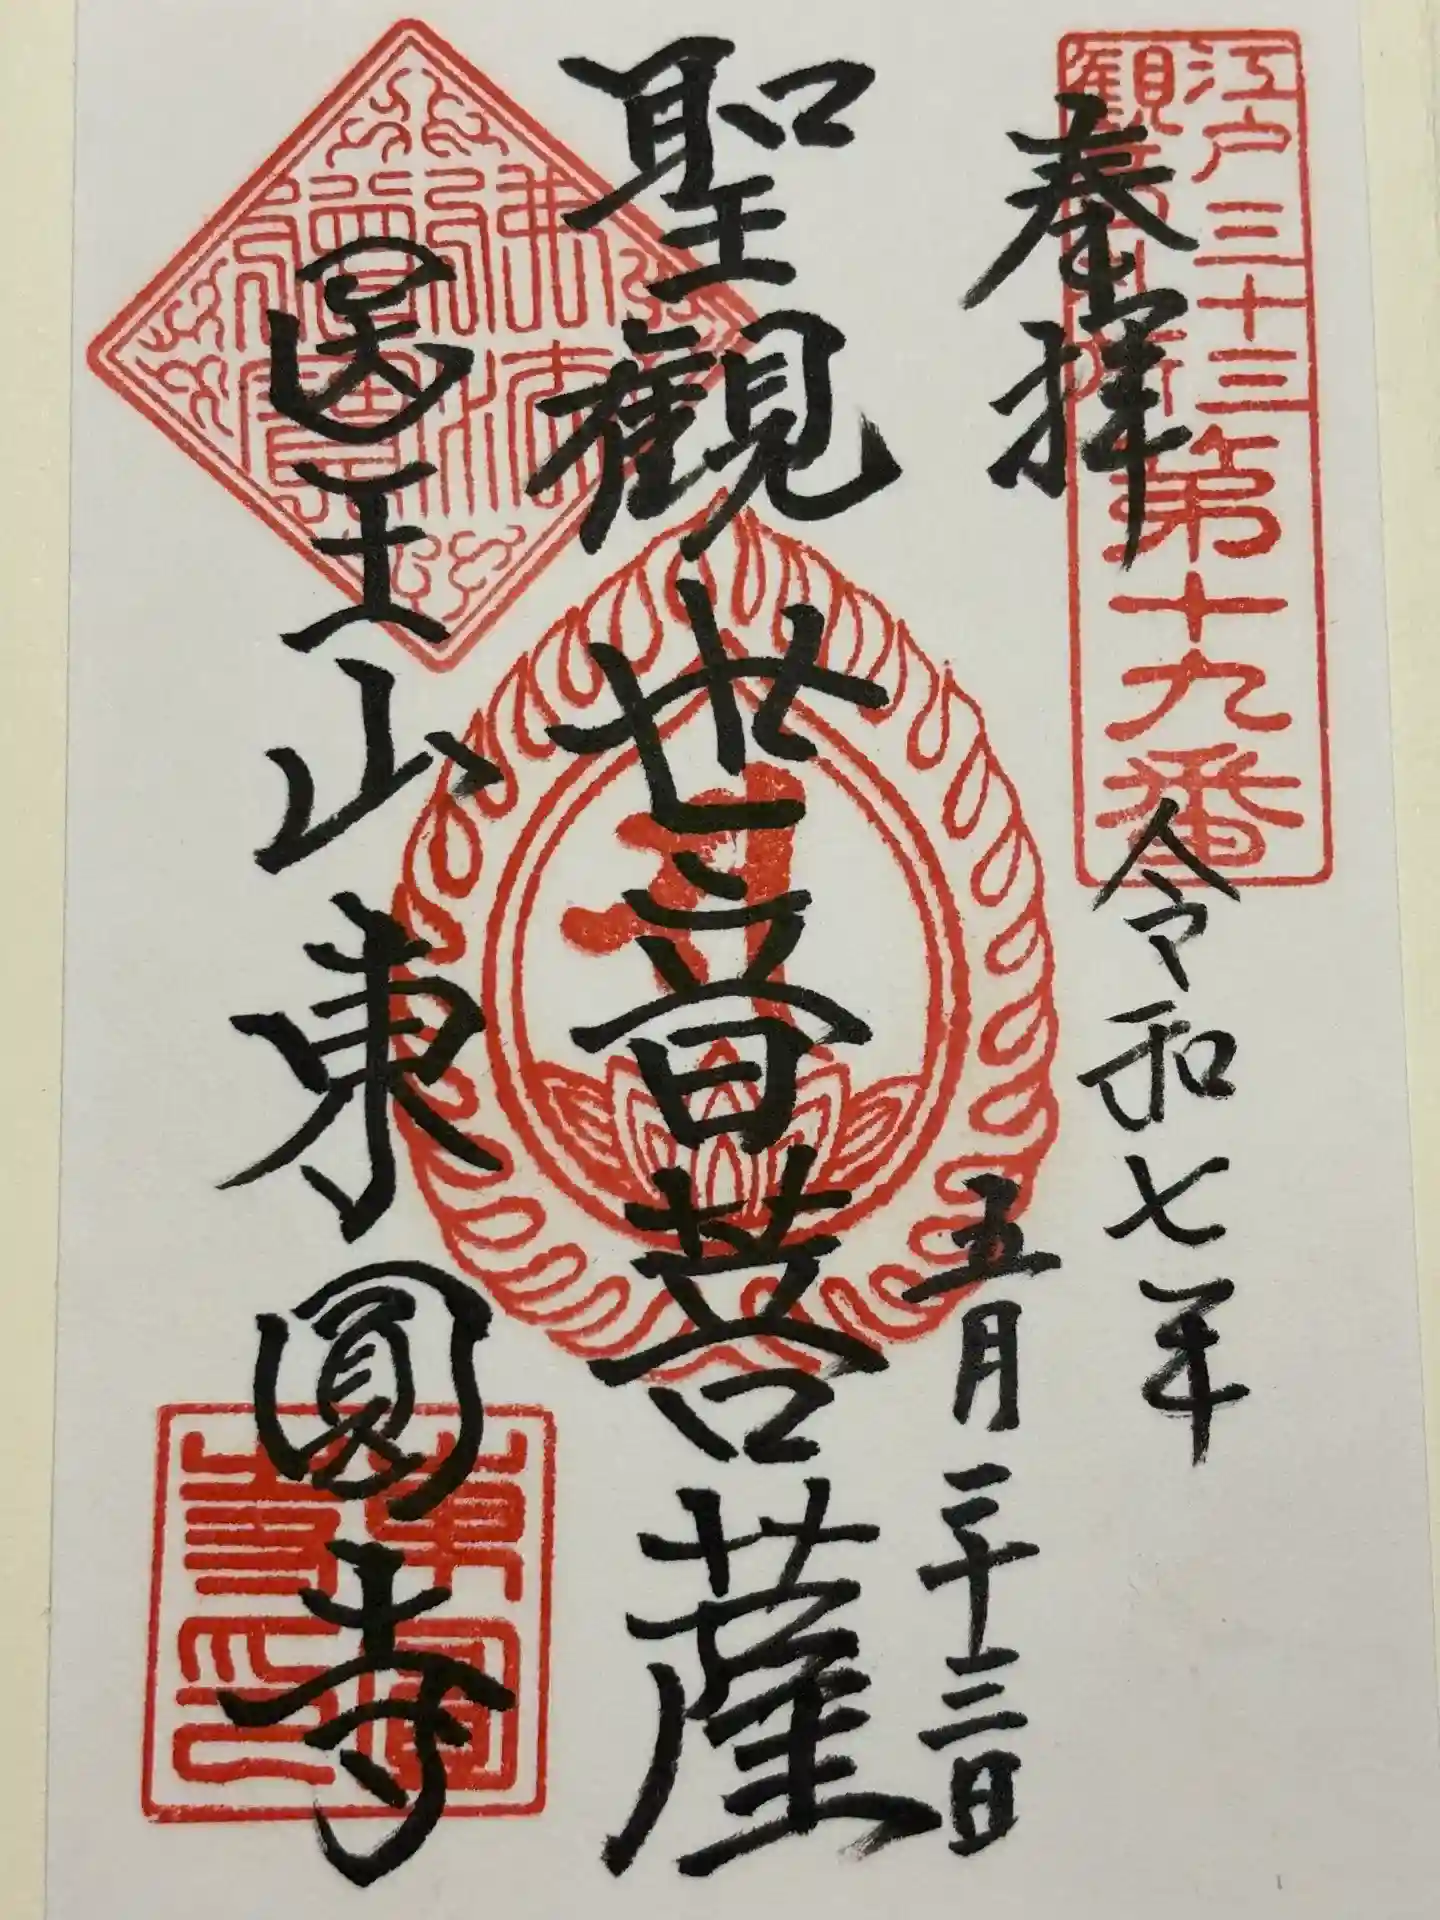 江戸三十三
観音札所
第十九番
奉拝
令和七年
五月二十三日
聖観世音菩薩
医王山東圓寺
佛法
僧寶
東圓
寺印